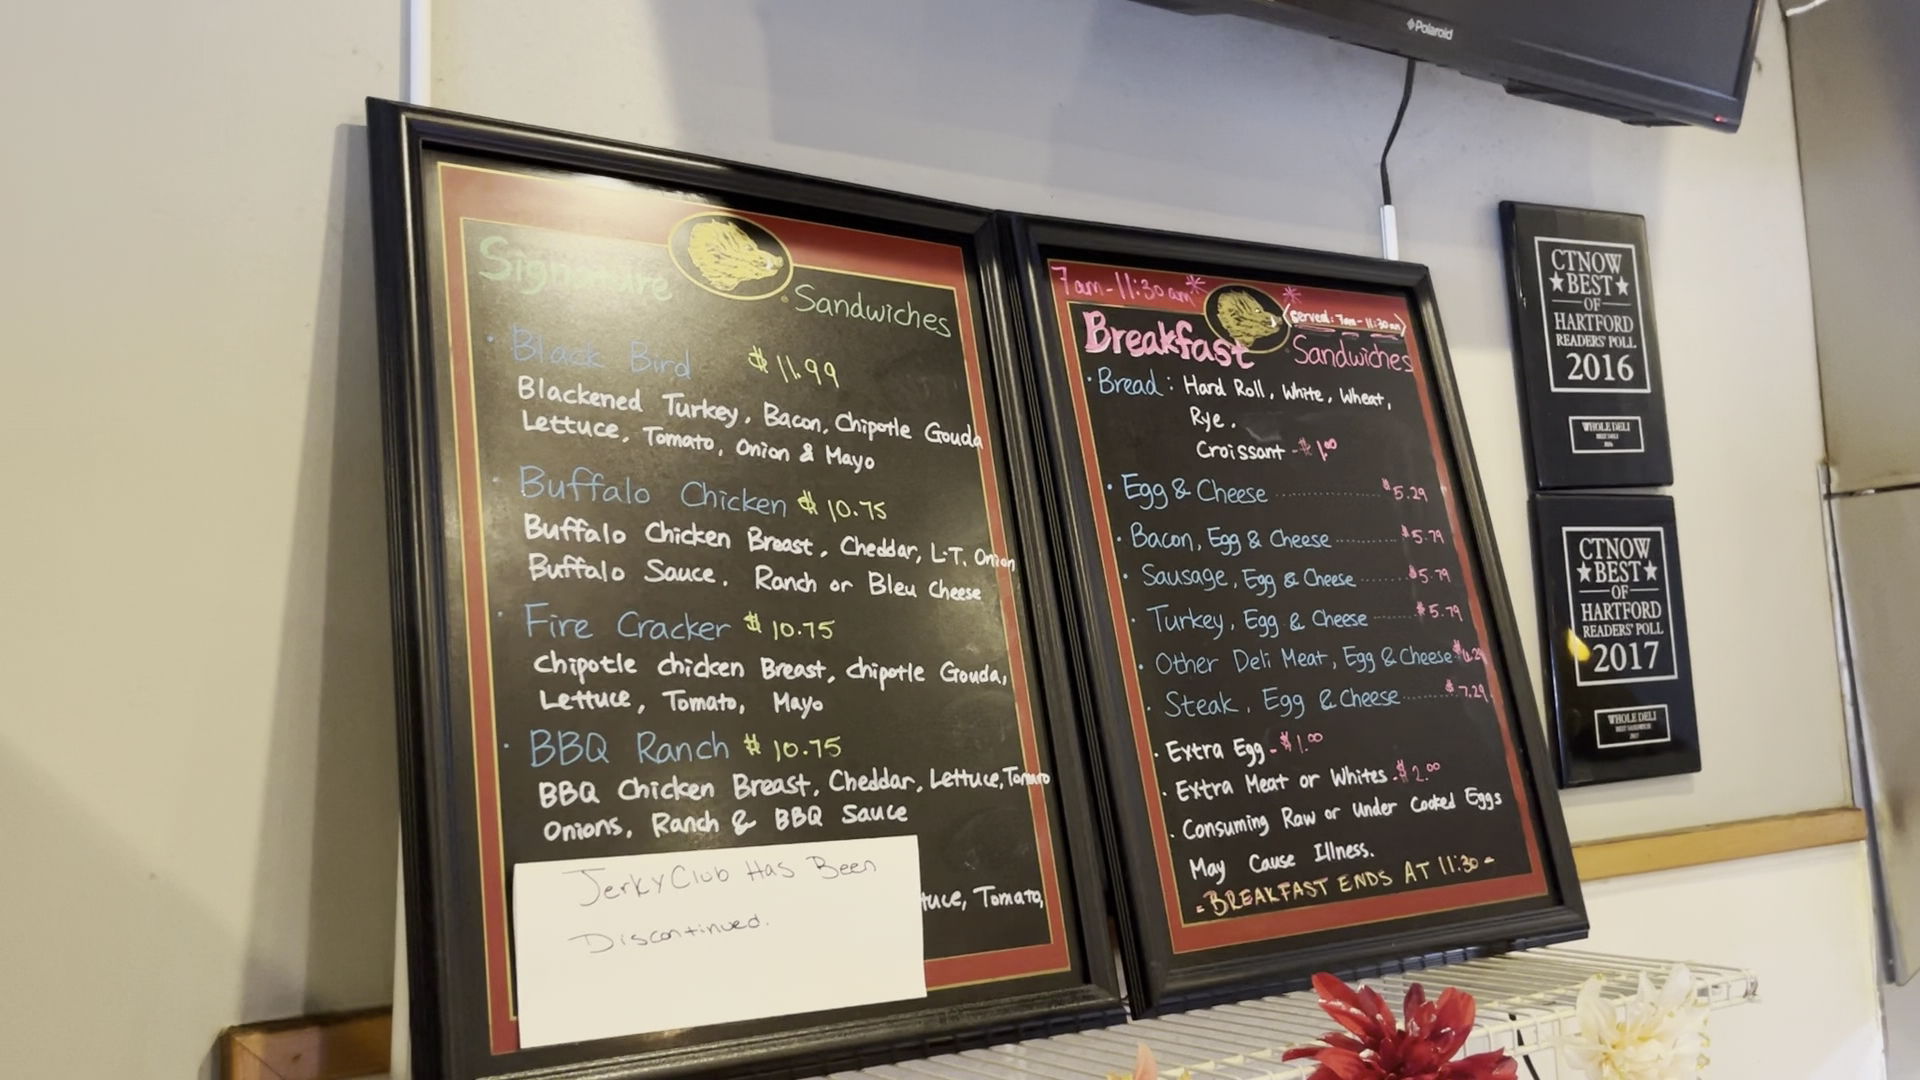 Polaroid
Signature
Sandwiches
Black Bird $11.99
Blackened Turkey, Bacon, Chipotle Gouda
Lettuce, Tomato, Onion & Mayo
Buffalo Chicken $10.75
Buffalo Chicken Breast, Cheddar, L.T. Onion
Buffalo Sauce. Ranch or Bleu Cheese
Fire Cracker $10.75
Chipotle chicken Breast, chipotle Gouda,
Lettuce, Tomato, Mayo
BBQ Ranch $10.75
BBQ Chicken Breast, Cheddar, Lettuce, Tomato
Onions, Ranch & BBQ Sauce
tuce, Tomato,
Jerky Club Has Been
Discontinued.
7am-11:30am*
*(served: 7am-11:30am)
Breakfast
Sandwiches
Bread: Hard Roll, White, Wheat,
Rye.
Croissant - $1.00
Egg & Cheese ........ $5.29
Bacon, Egg & Cheese ........ $5.79
Sausage, Egg & Cheese ....... $5.79
Turkey, Egg & Cheese ....... $5.79
Other Deli Meat, Egg & Cheese
Steak, Egg & Cheese ....... $7.29
Extra Egg - $1.00
Extra Meat or Whites - $2.00
Consuming Raw or Under Cooked Eggs
May Cause Illness.
- BREAKFAST ENDS AT 11:30 -
CTNOW
BEST
OF
HARTFORD
READERS' POLL
2016
WHOLE DELI
BEST DELI
2016
CTNOW
BEST
OF
HARTFORD
READERS' POLL
2017
WHOLE DELI
BEST SANDWICH
2017